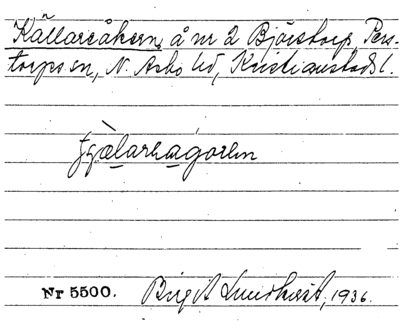 Källareåkern, å nr 2 Björstorp, Pers-
torps sn, N. Åsbo hd, Kristianstads l.
Nr 5500. Birgit Lundkvist, 1936.